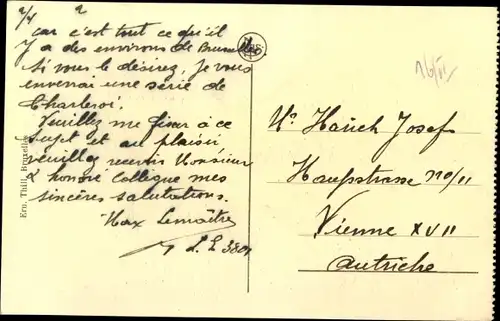 2/4 2
car c'est tout ce qu'il
y a des environs de Bruxelles.
Si vous le désirez, je vous
enverrai une série de
Charleroi.
Veuillez me fixer à ce
sujet et au plaisir
veuillez recevoir Monsieur
& honoré Collègue mes
sincères salutations.
Max Lemaître
L. L. 3801
Ern. Thill, Bruxelles
16/11
Mr. Hauch Josef
Haupstrasse 70/11
Vienne XVII
Autriche